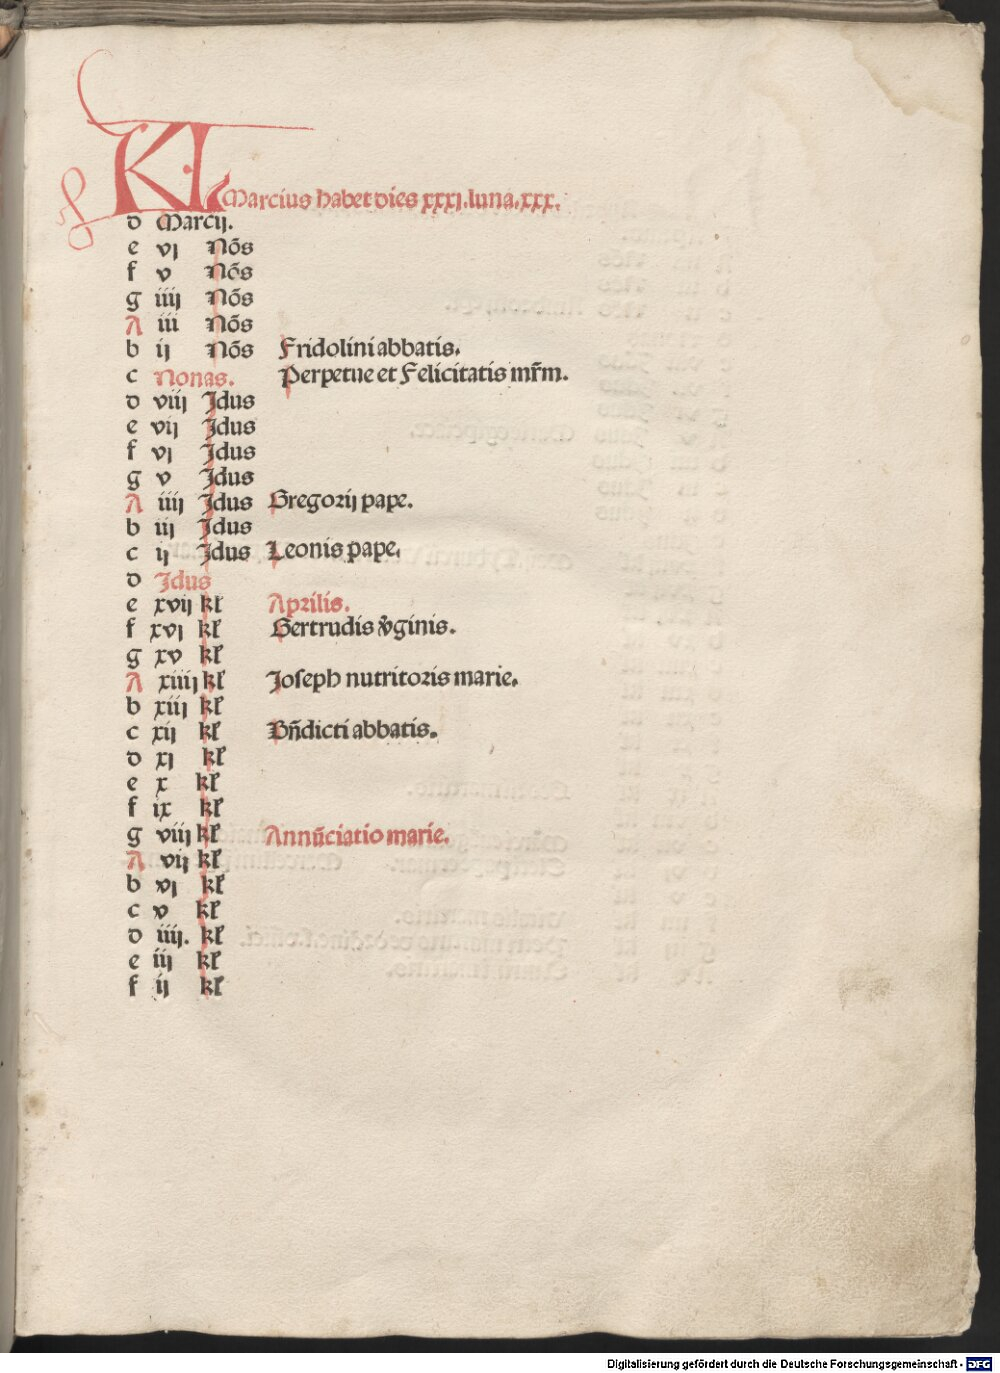 KL Marcius habet dies xxxj. luna. xxx.
d Marcij.
e vj Nōs
f v Nōs
g iiij Nōs
A iii Nōs
b ij Nōs Fridolini abbatis.
c Nonas. Perpetue et Felicitatis mr̄m.
d viij Idus
e vij Idus
f vj Idus
g v Idus
A iiij Idus Gregorij pape.
b iij Idus
c ij Idus Leonis pape.
d Idus
e xvij kl̄ Aprilis.
f xvj kl̄ Gertrudis v̄ginis.
g xv kl̄
A xiiij kl̄ Joseph nutritoris marie.
b xiij kl̄
c xij kl̄ Bn̄dicti abbatis.
d xj kl̄
e x kl̄
f ix kl̄
g viij kl̄ Annūciatio marie.
A vij kl̄
b vj kl̄
c v kl̄
d iiij. kl̄
e iij kl̄
f ij kl̄
Digitalisierung gefördert durch die Deutsche Forschungsgemeinschaft - DFG